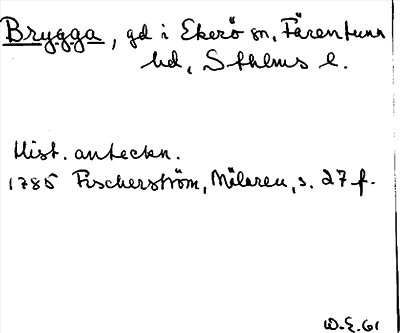 Brygga, gd i Ekerö sn, Färentuna
hd, Sthlms l.
Hist. anteckn.
1785 Fischerström, Mälaren, s. 27 f.
W.E. 61